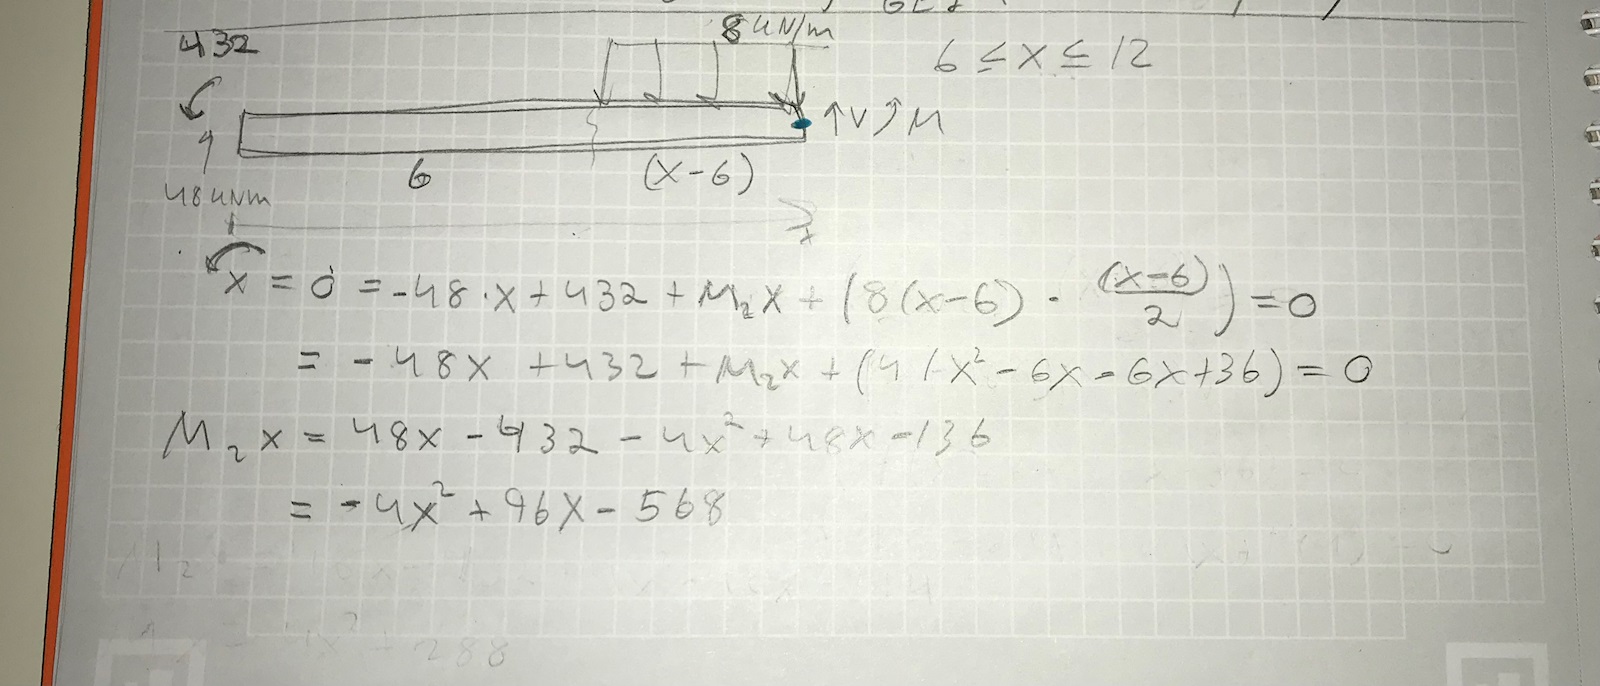 432
8 kN/m
6 ≤ x ≤ 12
↑V M
6
(x-6)
48 kNm
x
x = 0 = -48·x + 432 + M₂x + (8(x-6) · (x-6)/2) = 0
= -48x + 432 + M₂x + (4(x²-6x-6x+36) = 0
M₂x = 48x - 432 - 4x² + 48x - 136
= -4x² + 96x - 568